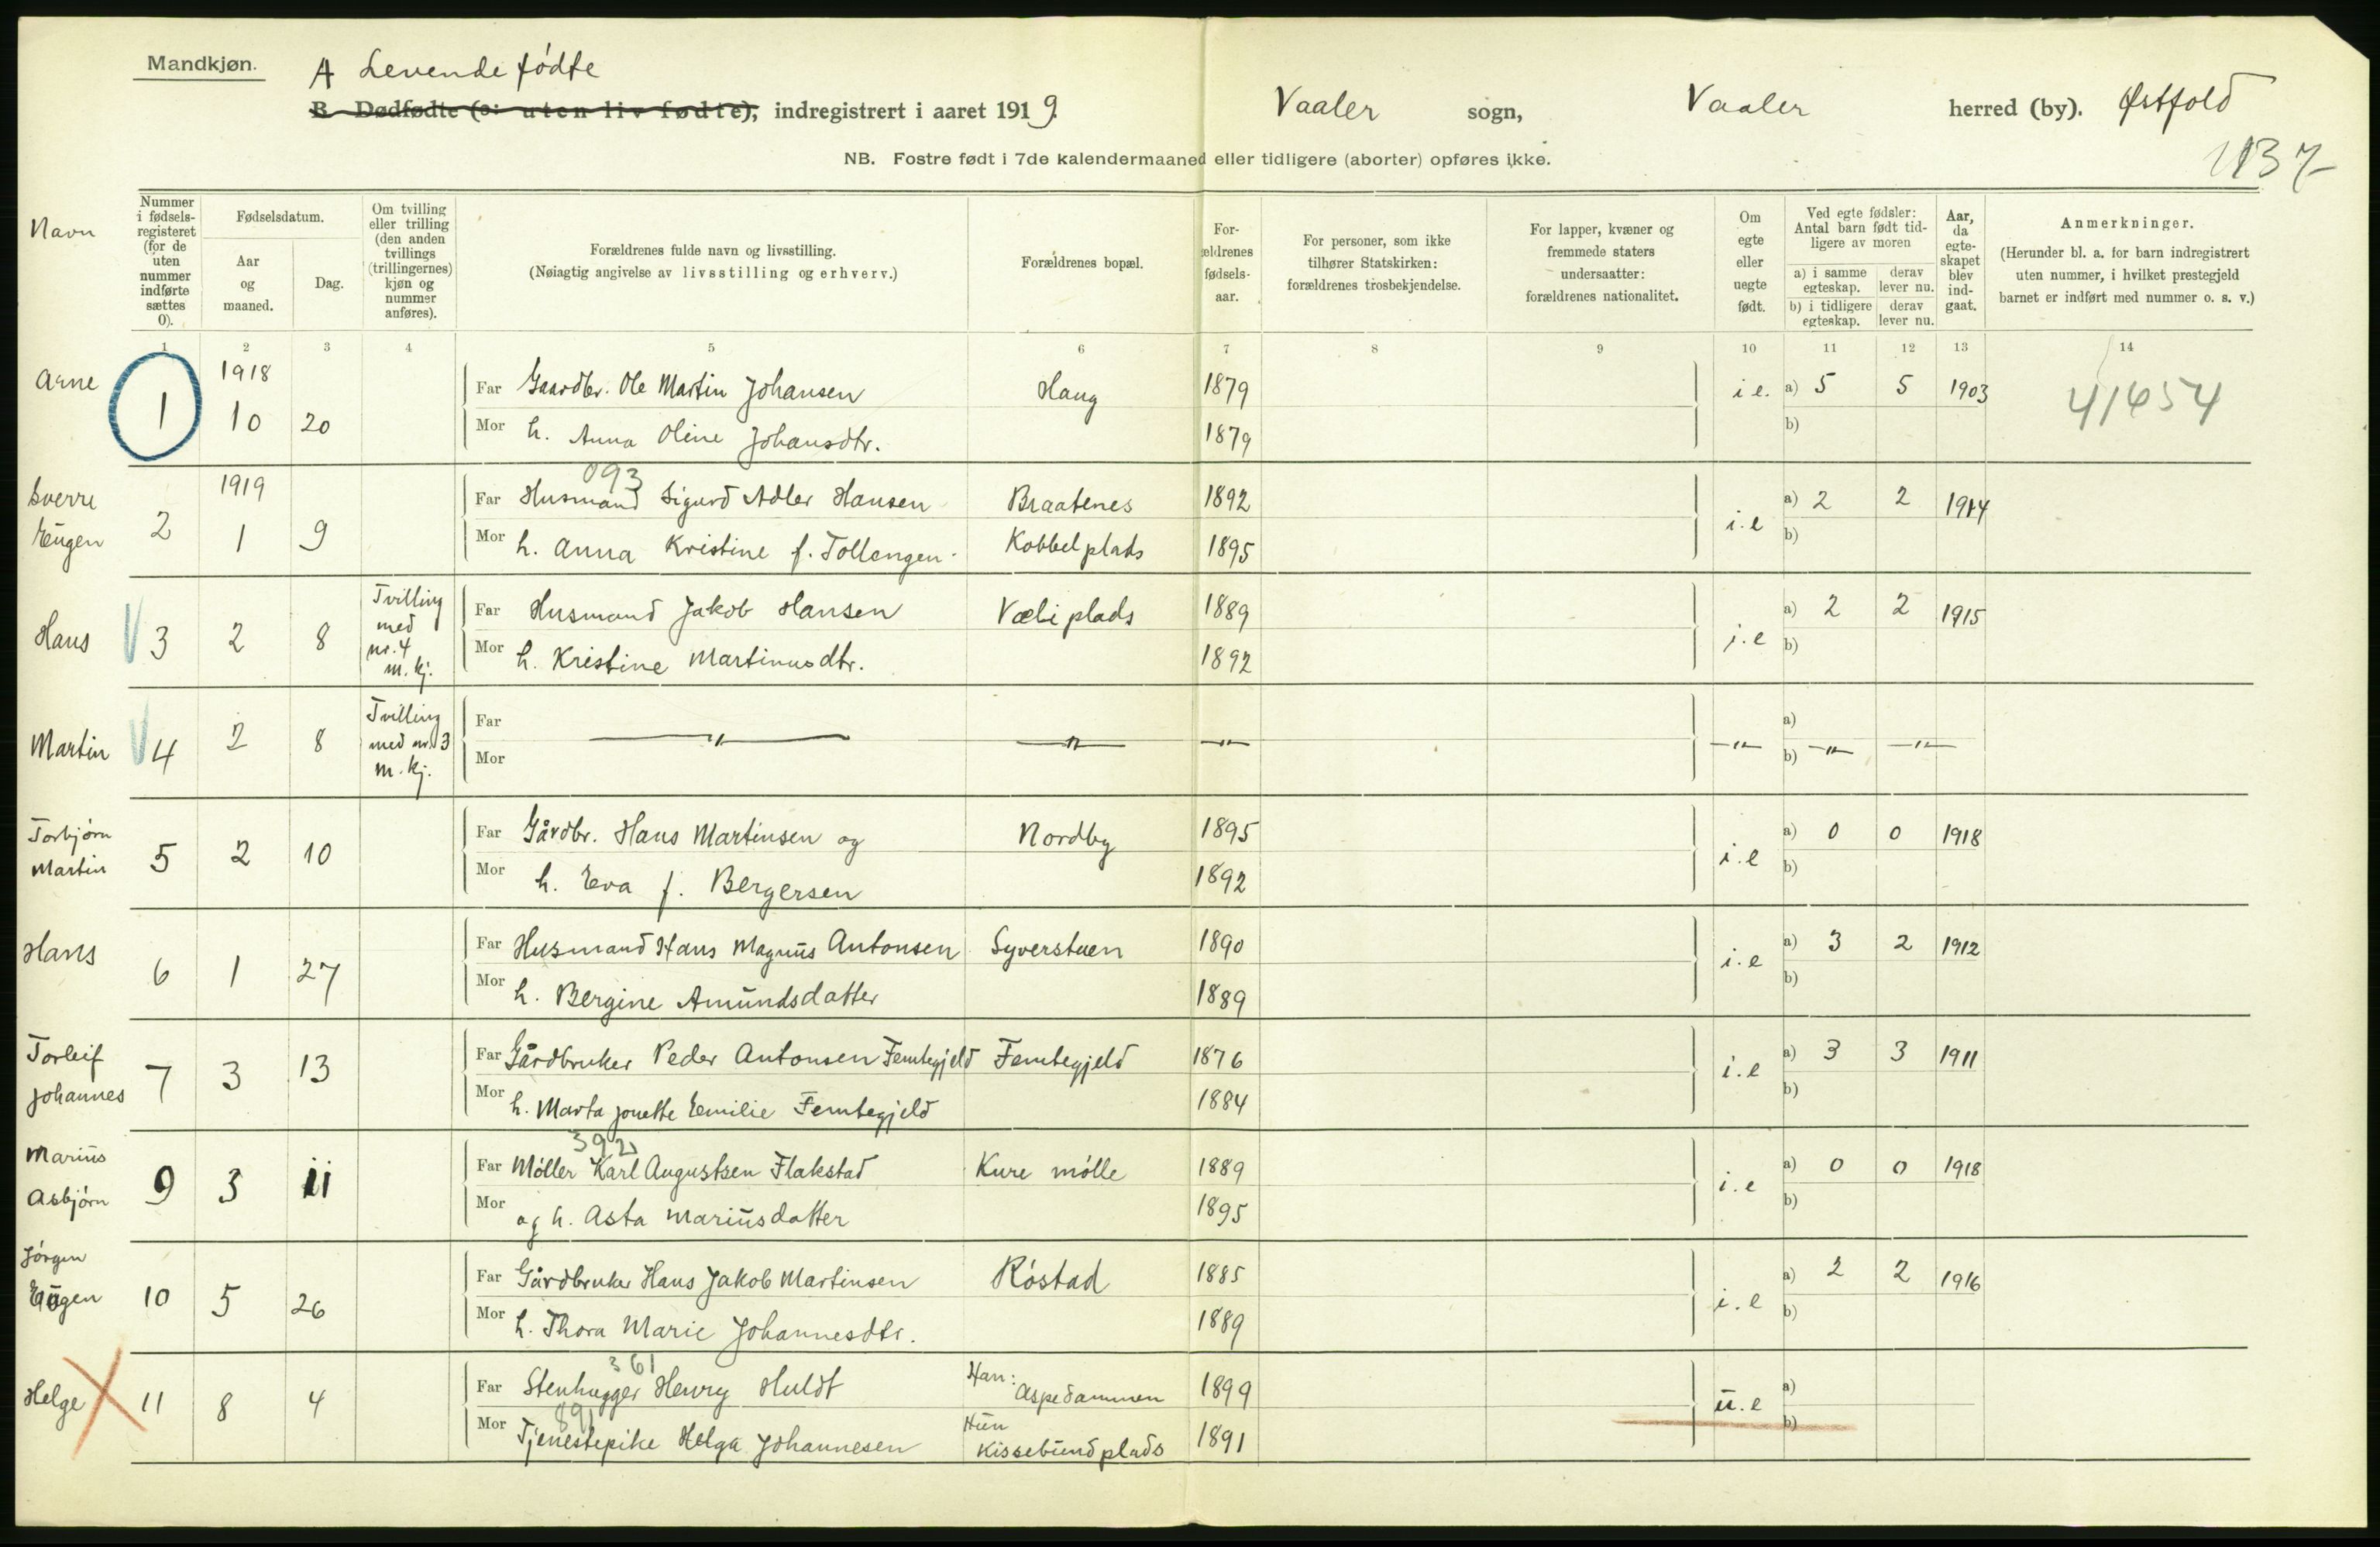 Mandkjøn.
A Levende fødte
B. Dødfødte (ɔ: uten liv fødte), indregistrert i aaret 1919.
Vaaler sogn, Vaaler herred (by). Østfold
NB. Fostre født i 7de kalendermaaned eller tidligere (aborter) opføres ikke.
137
Navn
Nummer i fødsels-registeret (for de uten nummer indførte sættes 0).
Fødselsdatum.
Aar og maaned.
Dag.
Om tvilling eller trilling (den anden tvillings (trillingernes) kjøn og nummer anføres).
Forældrenes fulde navn og livsstilling.
(Nøiagtig angivelse av livsstilling og erhverv.)
Forældrenes bopæl.
For-ældrenes fødsels-aar.
For personer, som ikke tilhører Statskirken: forældrenes trosbekjendelse.
For lapper, kvæner og fremmede staters undersaatter: forældrenes nationalitet.
Om egte eller uegte født.
Ved egte fødsler: Antal barn født tid-ligere av moren
a) i samme egteskap. derav lever nu.
b) i tidligere egteskap. derav lever nu.
Aar, da egte-skapet blev ind-gaat.
Anmerkninger.
(Herunder bl. a. for barn indregistrert uten nummer, i hvilket prestegjeld barnet er indført med nummer o. s. v.)
1 2 3 4 5 6 7 8 9 10 11 12 13 14
Arne 1 1918 10 20 Far Gaardbr. Ole Martin Johansen Haug 1879 i e. a) 5 5 1903 41454
Mor h. Anna Oline Johansdtr. 1879 b)
093
Sverre Eugen 2 1919 1 9 Far Husmand Sigurd Adler Hansen Braatenes 1892 i.e a) 2 2 1914
Mor h. Anna Kristine f. Tollengen. Kobbelplads 1895 b)
Hans 3 2 8 Tvilling med nr. 4 m. kj. Far Husmand Jakob Hansen Væliplads 1889 i.e a) 2 2 1915
Mor h. Kristine Martinusdtr. 1892 b)
Martin 4 2 8 Tvilling med nr. 3 m. kj. Far —"— —"— —"— —"— a)
Mor b) —"— —"—
Torbjørn Martin 5 2 10 Far Gårdbr. Hans Martinsen og Nordby 1895 i.e a) 0 0 1918
Mor h. Eva f. Bergersen 1892 b)
Hans 6 1 27 Far Husmand Hans Magnus Antonsen Syverstuen 1890 i.e a) 3 2 1912
Mor h. Bergine Amundsdatter 1889 b)
Torleif Johannes 7 3 13 Far Gårdbruker Peder Antonsen Femtegjeld Femtegjeld 1876 i.e a) 3 3 1911
Mor h. Marta Jonette Emilie Femtegjeld 1884 b)
392
Marius Asbjørn 9 3 11 Far Møller Karl Augustsen Flakstad Kure mølle 1889 i.e a) 0 0 1918
Mor og h. Asta Mariusdatter 1895 b)
Jørgen Eugen 10 5 26 Far Gårdbruker Hans Jakob Martinsen Røstad 1885 i.e a) 2 2 1916
Mor h. Thora Marie Johannesdtr. 1889 b)
361
Helge 11 8 4 Far Stenhugger Henry Huldt Han: Aspedammen 1899 u.e a)
891
Mor Tjenestepike Helga Johannesen Hun Kissebundplads 1891 b)